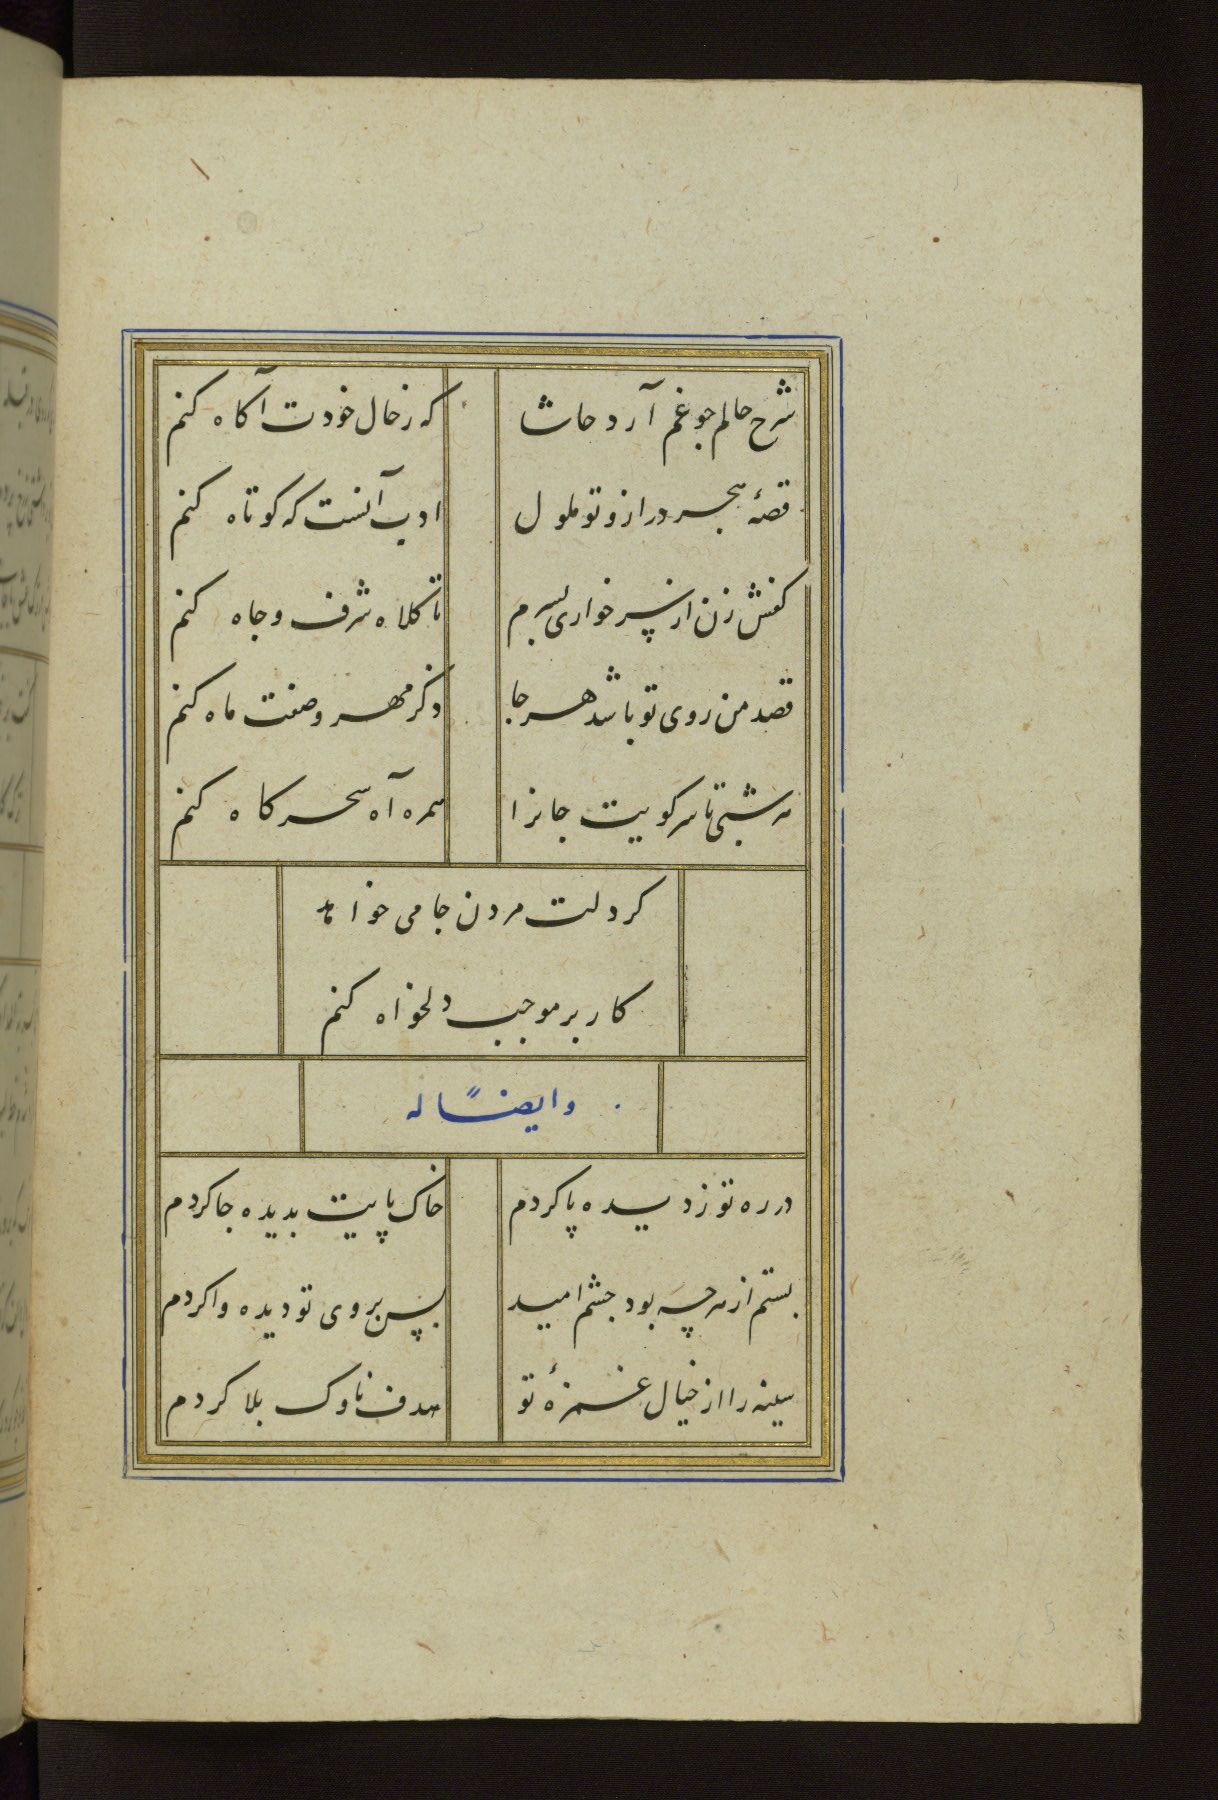 شرح حالم جو غم آرد حاشا
که ز حال خودت آکاه کنم
قصهٔ هجر دراز و تو ملول
ادب آنست که کوتاه کنم
کفش زن از سر خواری بسرم
تا کلاه شرف و جاه کنم
قصد من روی تو باشد هر جا
ذکر مهر و صفت ماه کنم
هر شبی تا سر کویت جانرا
همره آه سحرکاه کنم
کر دلت مردن جامی خواهد
کار بر موجب دلخواه کنم
وایضاً له
در ره تو ز دیده پا کردم
خاک پایت بدیده جا کردم
بستم از هر چه بود چشم امید
پس بروی تو دیده وا کردم
سینه را از خیال غمزهٔ تو
هدف ناوک بلا کردم